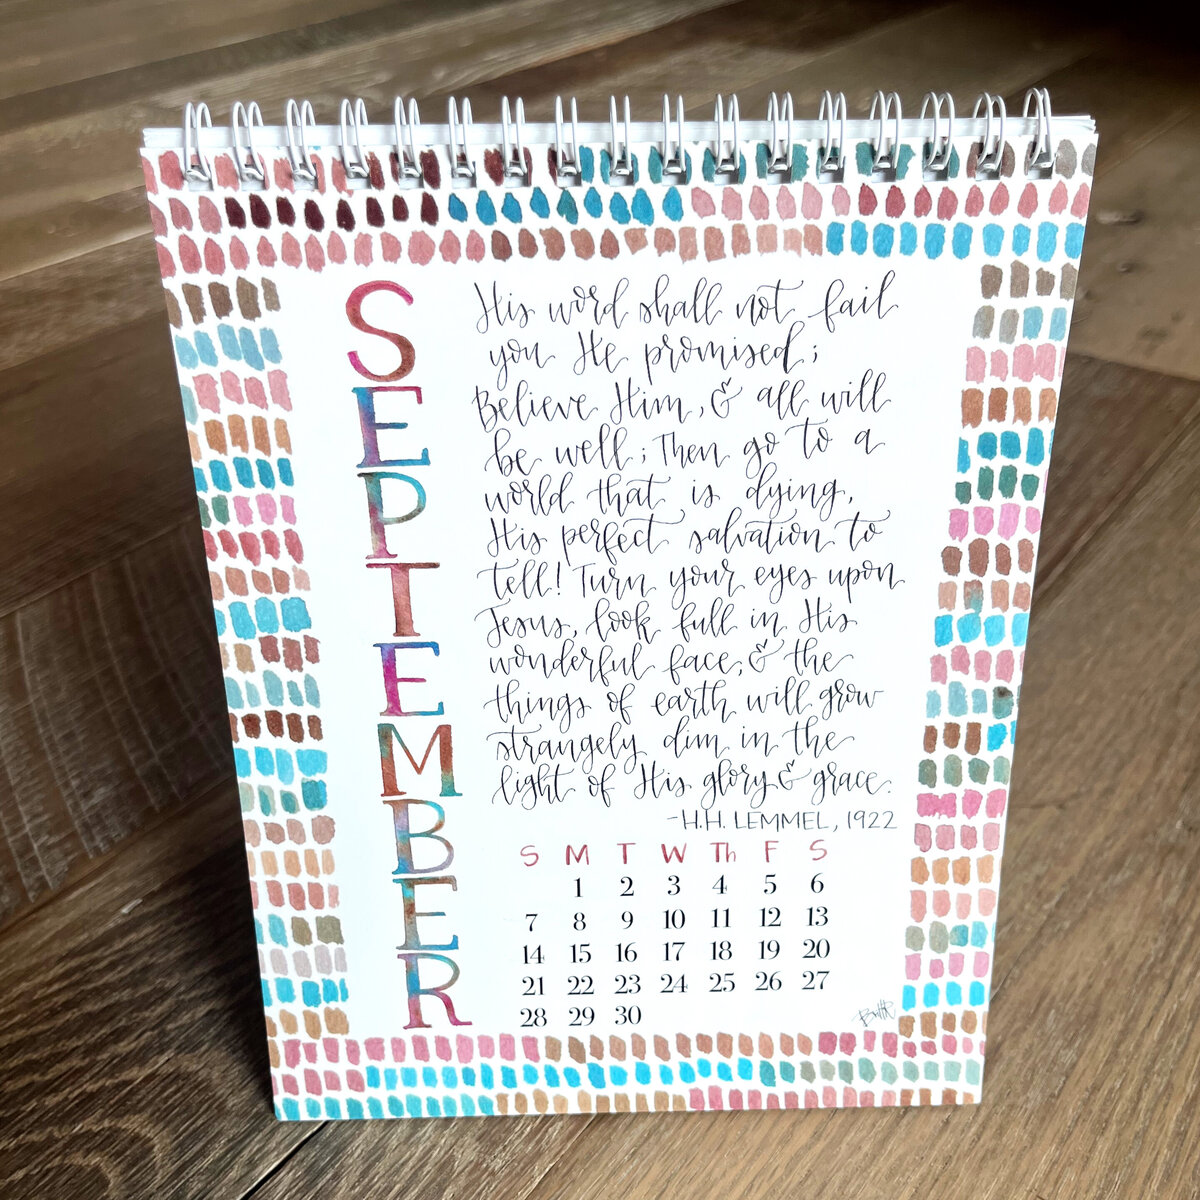 SEPTEMBER
His word shall not fail
you He promised;
Believe Him, & all will
be well; Then go to a
world that is dying,
His perfect salvation to
tell! Turn your eyes upon
Jesus, look full in His
wonderful face, & the
things of earth will grow
strangely dim in the
light of His glory & grace.
-H.H. LEMMEL, 1922
S M T W Th F S
1 2 3 4 5 6
7 8 9 10 11 12 13
14 15 16 17 18 19 20
21 22 23 24 25 26 27
28 29 30